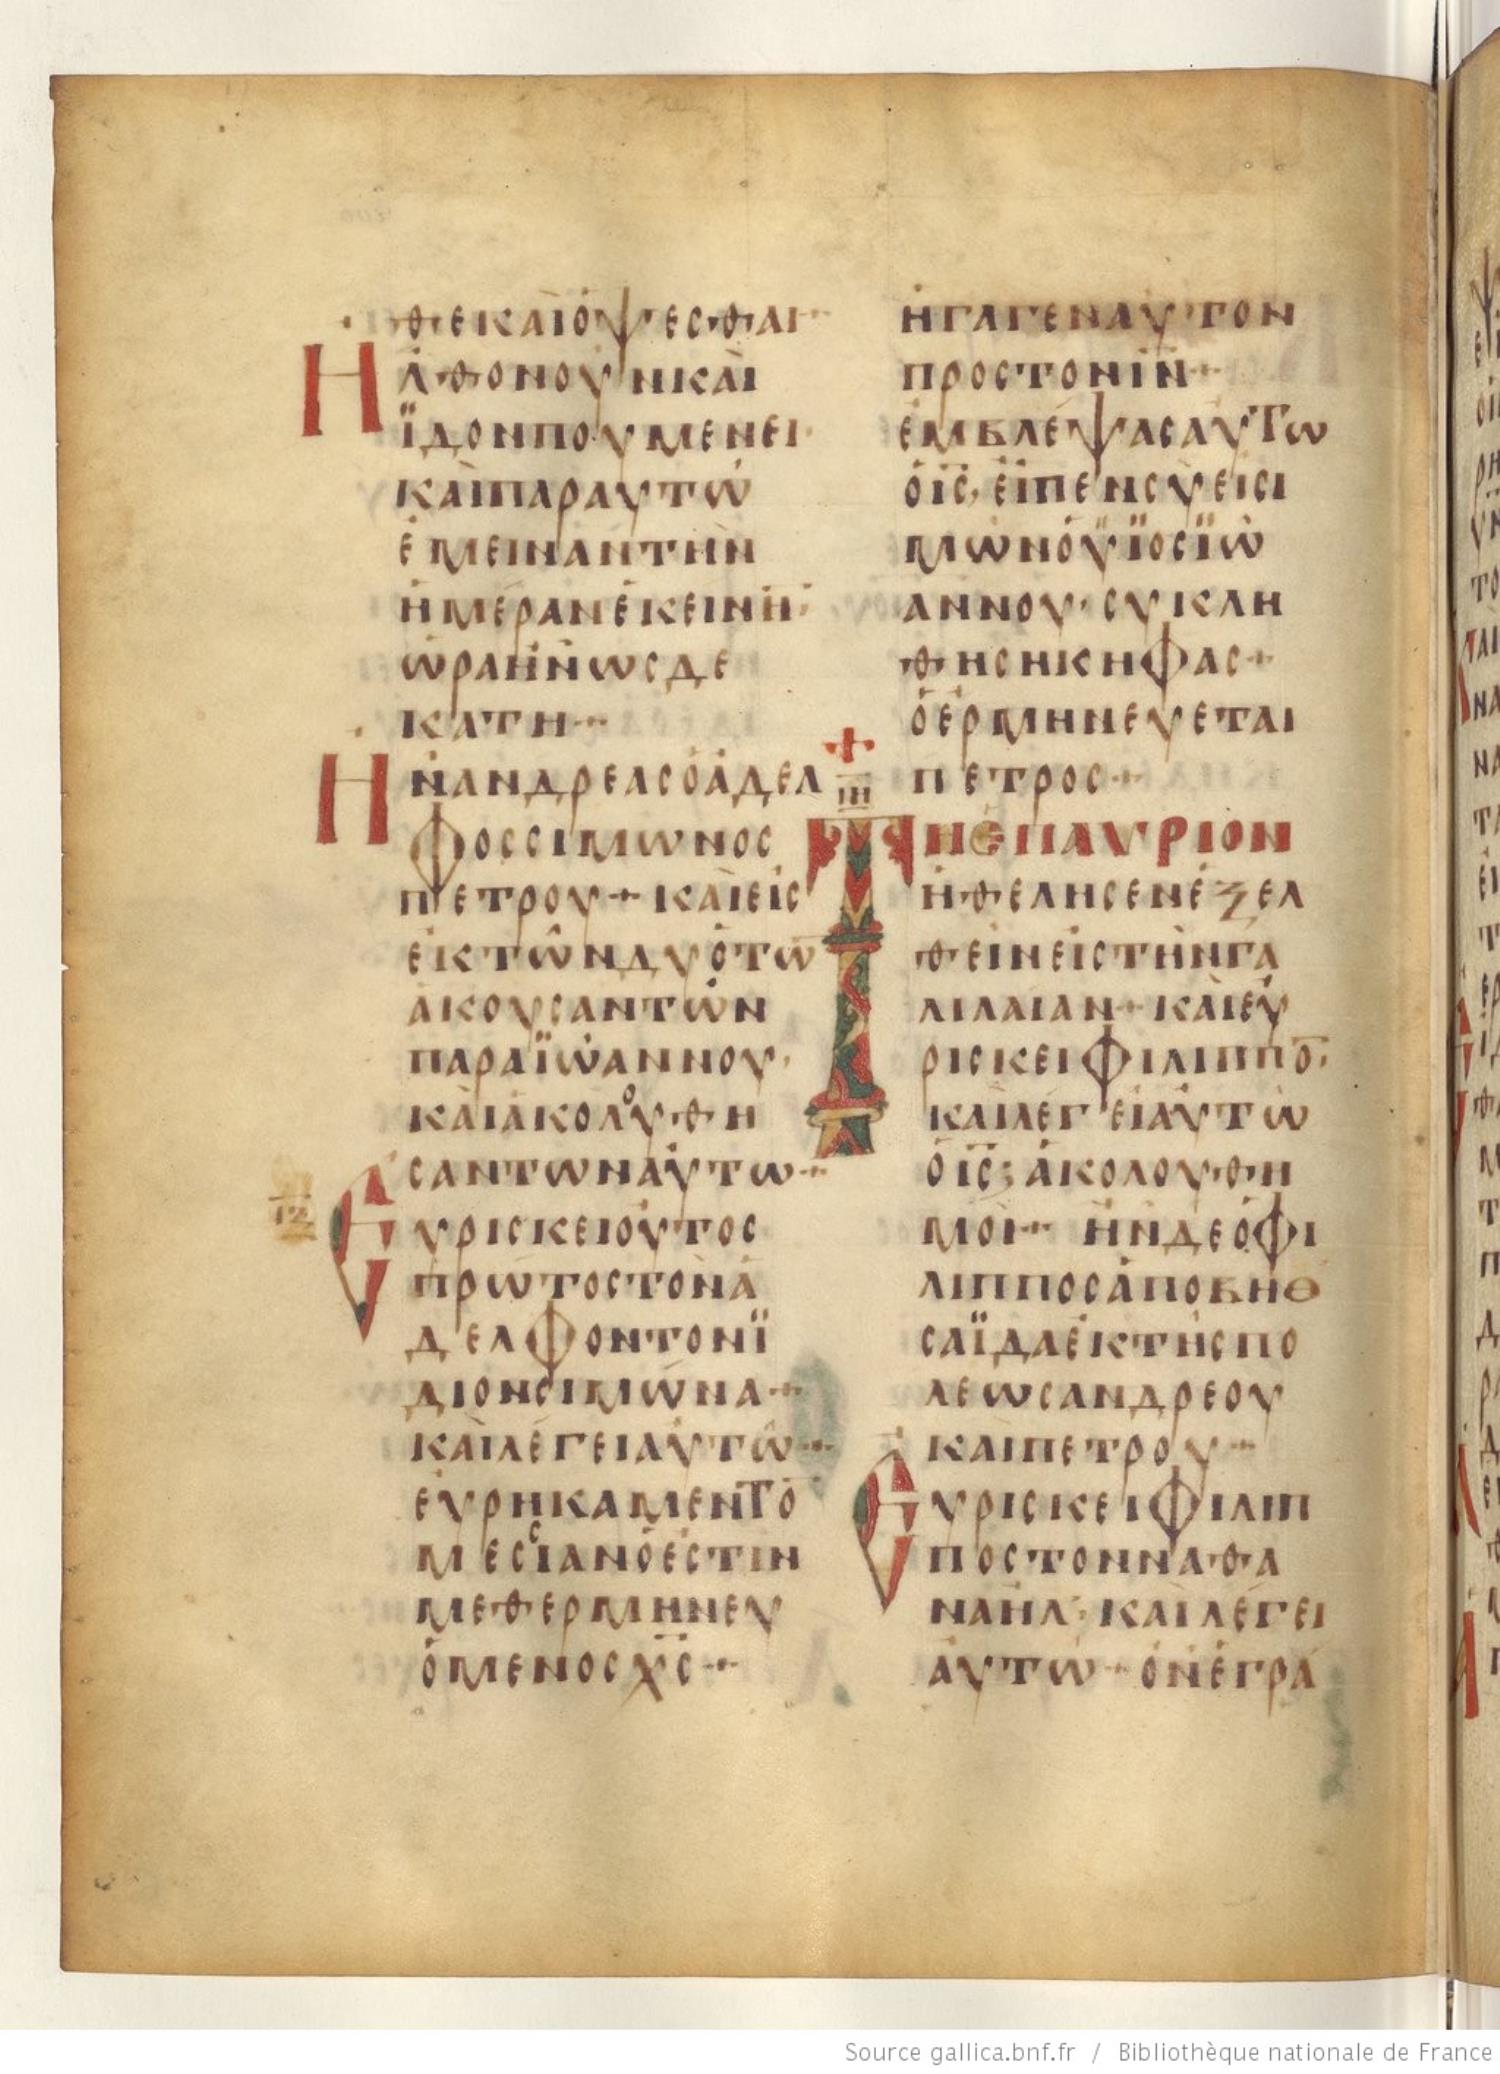 θεκαὶόψεσθαι
Ηλθονουνκαὶ
ϊδονπουμενει·
καὶπαραυτώ
ἐμειναντὴν
ἡμέρανἐκεινη·
ὡραἦνωςδε
κατη
Ηνανδρεαςὁἀδελ
φοςσιμωνος
πετρου+καὶεἱς
ἐκτῶνδυὁτω̅
ἀκουσαντών
παραϊὡαννου·
καὶἀκολουθη
σαντωναὐτω
Ευρισκειοὑτος
πρῶτοςτὸνἀ
δελφοντονϊ
διονσιμώνα+
καὶλέγειαὐτῶ
εὑρηκαμεντο̅
μεσσίανὁἐστιν
μεθερμηνευ
όμενοςχ̅ς̅
ιζ
ἡγαγεναυτον
προςτονι̅ν̅
ἐμβλέψαςαὐτω
ὁι̅ς̅,εἶπενσὺεἶσι
μωνὁυϊοςϊω
αννου·συκλη
θησηκηφας+
ὁἑρμηνευεται
πετρος+
ΙΙΙ
Τηἐπαυριον
ἡθελησενἐξελ
θεῖνεἰςτὴνγα
λιλαίαν+καὶεὑ
ρισκειφιλιππο̅·
καὶλέγειαὐτῶ
ὁι̅ς̅;ἀκολουθη
μοι ἦνδεὁφι
λιπποςἀποβηθ
σαϊδαἐκτῆςπο
λεωςανδρεου
καὶπετρου
Ευρισκειφιλιπ
ποςτονναθα
ναὴλ·καὶλέγει
αὐτω+ὁνἐγρα
Source gallica.bnf.fr / Bibliothèque nationale de France